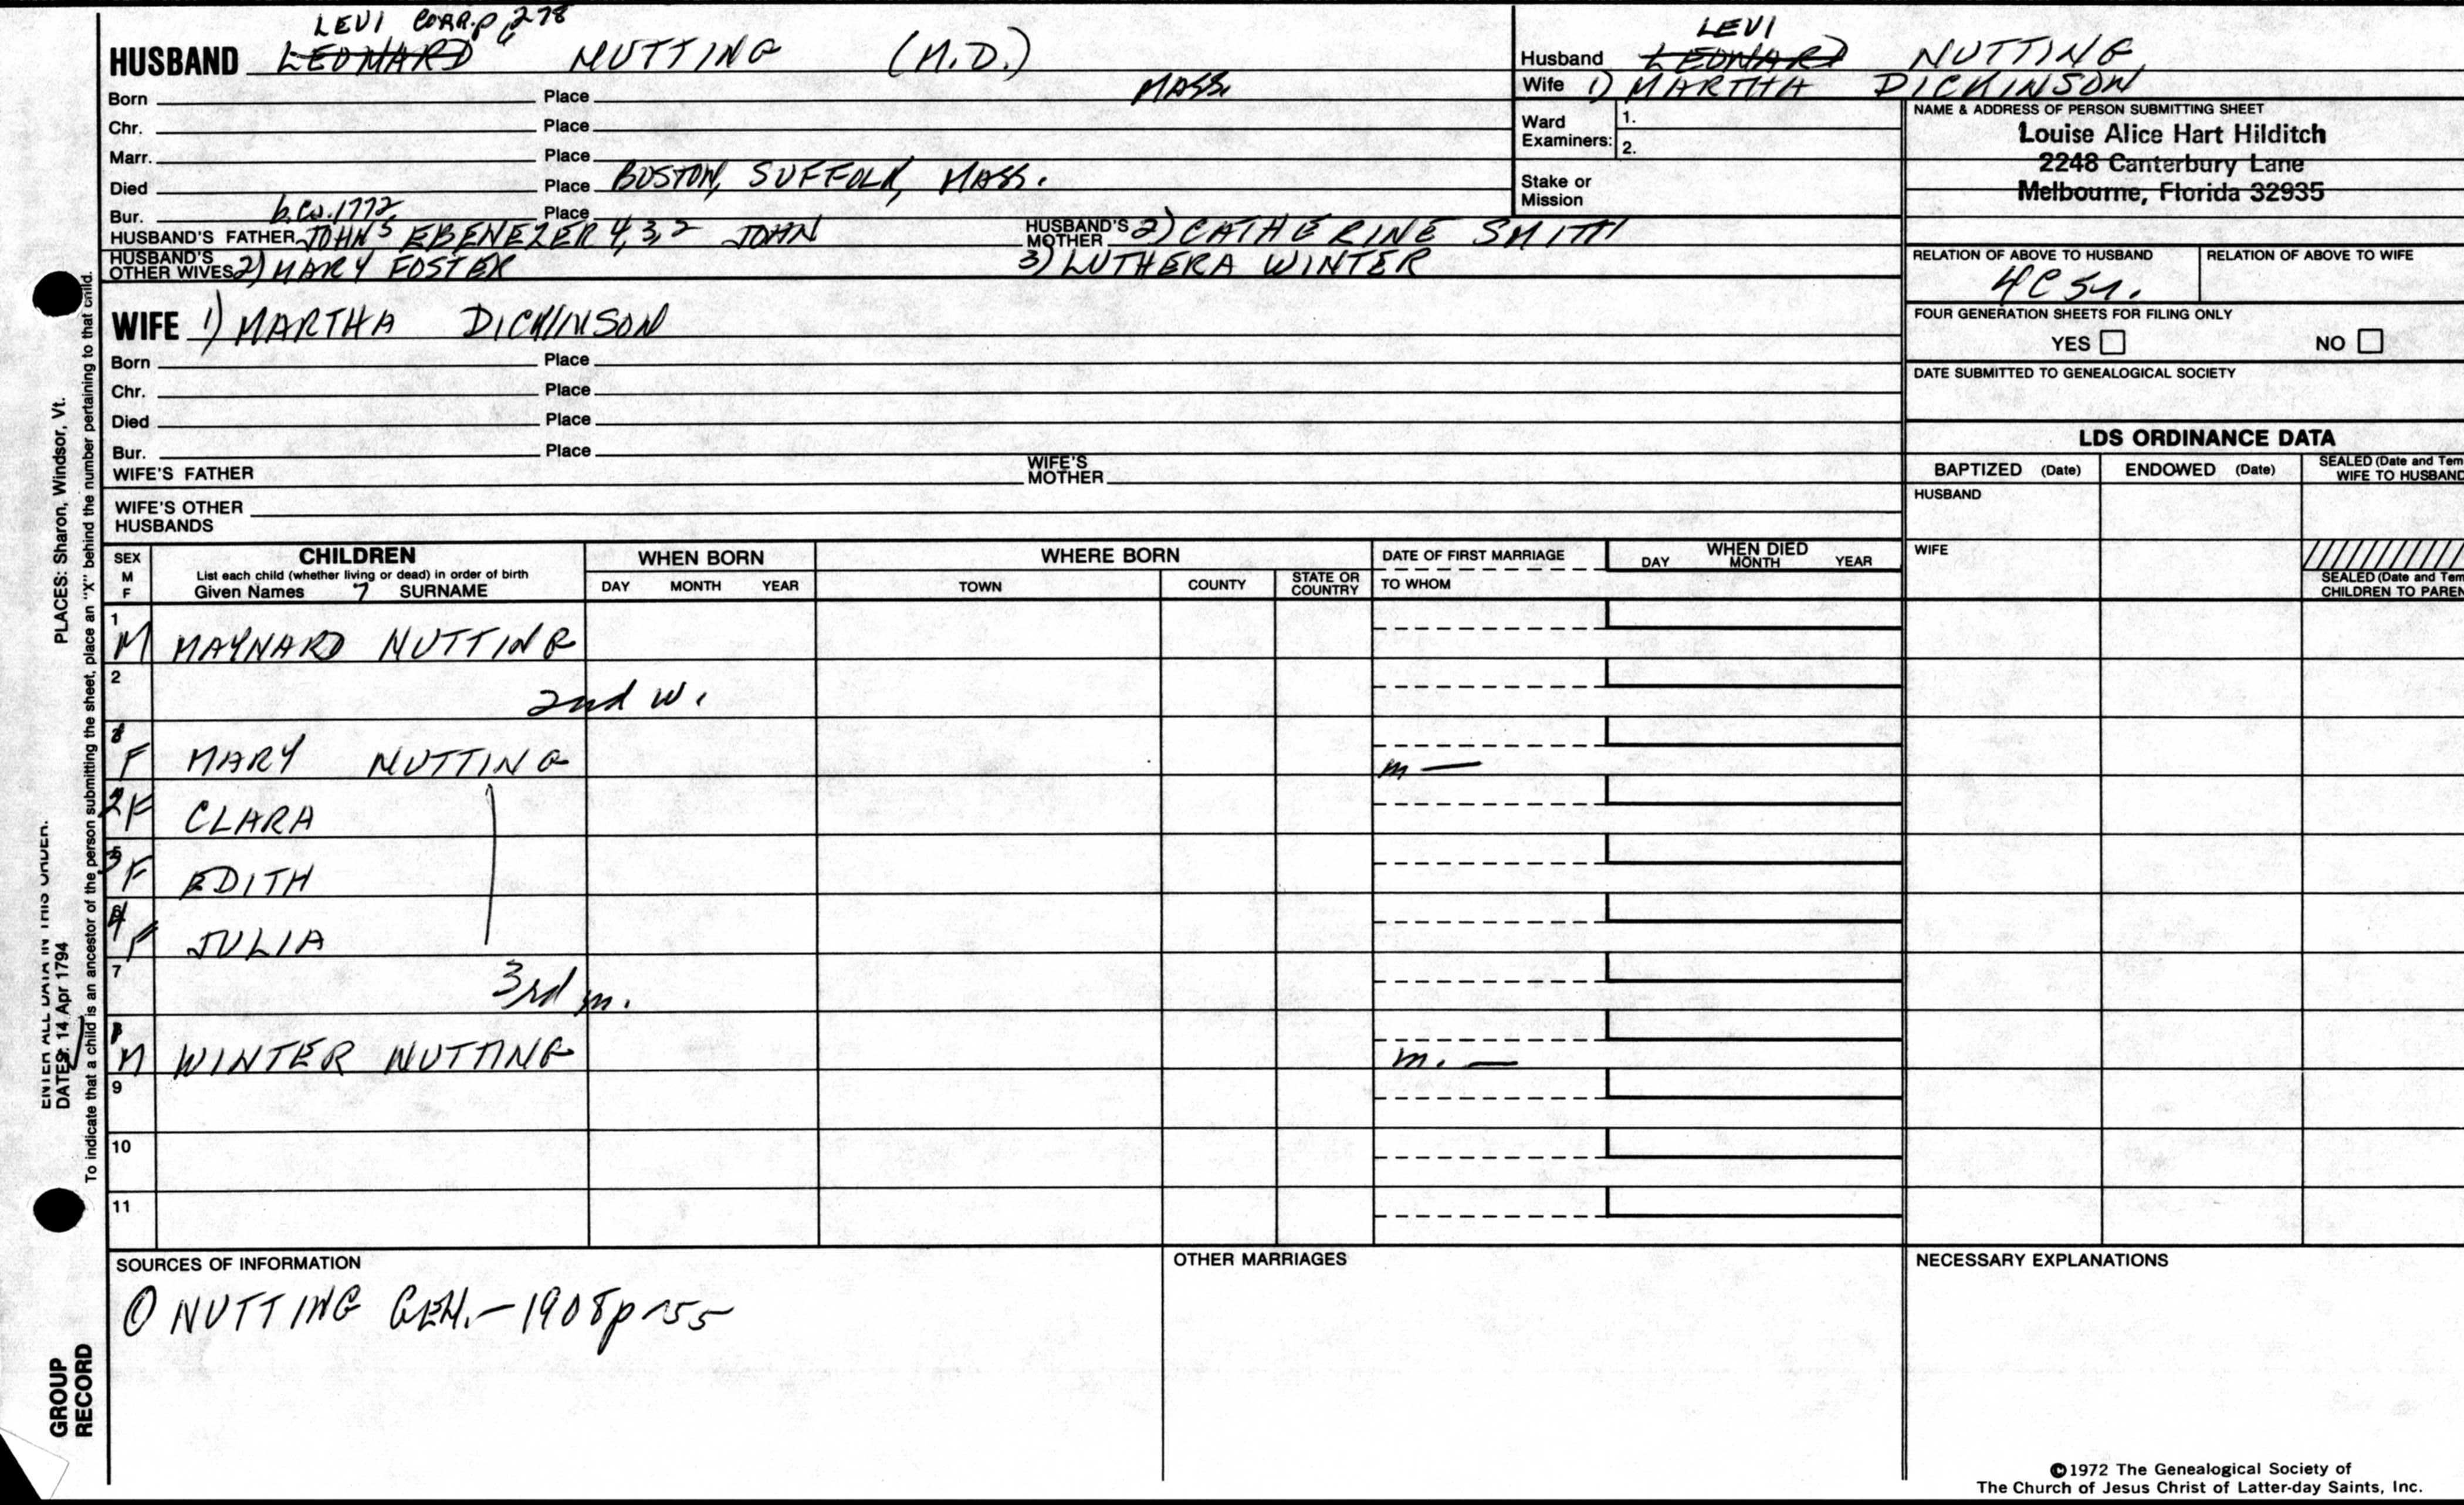 LEVI CORR. p. 278
HUSBAND LEONARD NUTTING (M.D.)
Born Place MASS.
Chr. Place
Marr. Place
Died Place BOSTON, SUFFOLK, MASS.
Bur. b. ca. 1772 Place
HUSBAND'S FATHER JOHN 5 EBENEZER 4, 3, 2 JOHN HUSBAND'S MOTHER 2) CATHERINE SMITH
HUSBAND'S OTHER WIVES 2) MARY FOSTER 3) LUTHERA WINTER
WIFE 1) MARTHA DICKINSON
Born Place
Chr. Place
Died Place
Bur. Place
WIFE'S FATHER WIFE'S MOTHER
WIFE'S OTHER HUSBANDS
LEVI
Husband LEONARD NUTTING
Wife 1) MARTHA DICKINSON
Ward Examiners: 1.
2.
Stake or Mission
NAME & ADDRESS OF PERSON SUBMITTING SHEET
Louise Alice Hart Hilditch
2248 Canterbury Lane
Melbourne, Florida 32935
RELATION OF ABOVE TO HUSBAND RELATION OF ABOVE TO WIFE
4C 5r.
FOUR GENERATION SHEETS FOR FILING ONLY
YES NO
DATE SUBMITTED TO GENEALOGICAL SOCIETY
LDS ORDINANCE DATA
BAPTIZED (Date) ENDOWED (Date) SEALED (Date and Tem
WIFE TO HUSBAND
HUSBAND
WIFE
SEALED (Date and Tem
CHILDREN TO PAREN
SEX M F CHILDREN WHEN BORN WHERE BORN DATE OF FIRST MARRIAGE WHEN DIED
List each child (whether living or dead) in order of birth
Given Names 7 SURNAME DAY MONTH YEAR TOWN COUNTY STATE OR COUNTRY TO WHOM DAY MONTH YEAR
1
M MAYNARD NUTTING
2
2nd w.
F MARY NUTTING m —
2 F CLARA
3 F EDITH
4 F JULIA
7
3rd m.
M WINTER NUTTING m. —
9
10
11
SOURCES OF INFORMATION OTHER MARRIAGES NECESSARY EXPLANATIONS
① NUTTING GEN. - 1908 p 155
©1972 The Genealogical Society of
The Church of Jesus Christ of Latter-day Saints, Inc.
ENTER ALL DATA IN THIS ORDER.
PLACES: Sharon, Windsor, Vt.
DATES: 14 Apr 1794
To indicate that a child is an ancestor of the person submitting the sheet, place an "X" behind the number pertaining to that child.
GROUP
RECORD